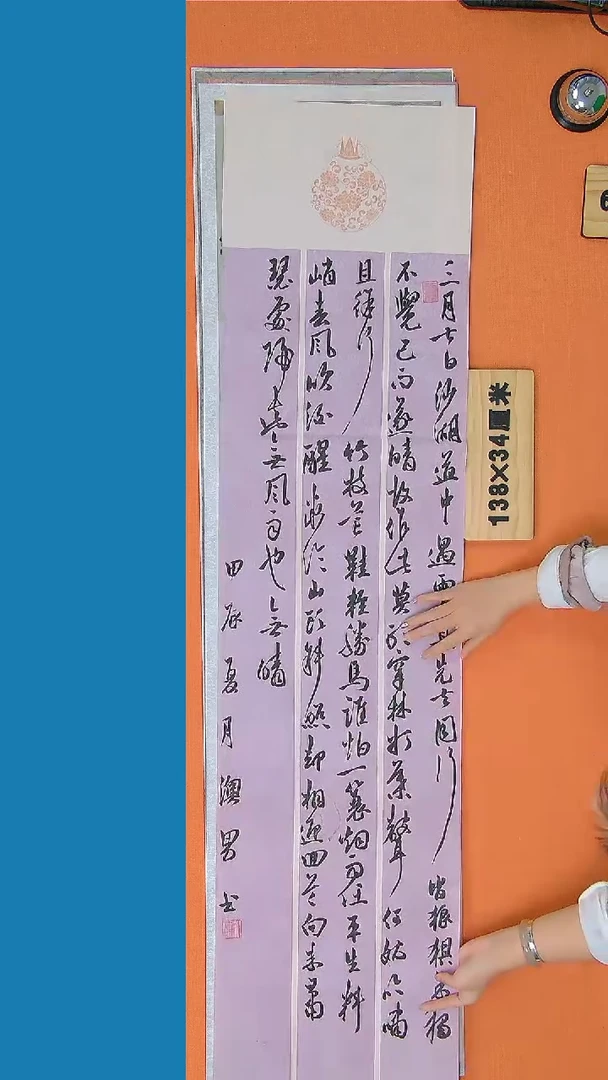 三月七日沙湖道中遇雨具先去同行皆狼狽余獨
不覺已而遂晴故作此莫聽穿林打葉聲何妨吟嘯
且徐行竹杖芒鞋輕勝馬誰怕一蓑烟雨任平生料
峭春風吹酒醒微冷山頭斜照却相迎回首向來蕭
瑟處歸去也無風雨也無晴
甲辰夏月澳男书
138×34厘米
6